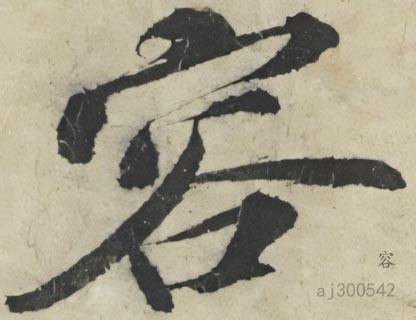 容
容
aj300542